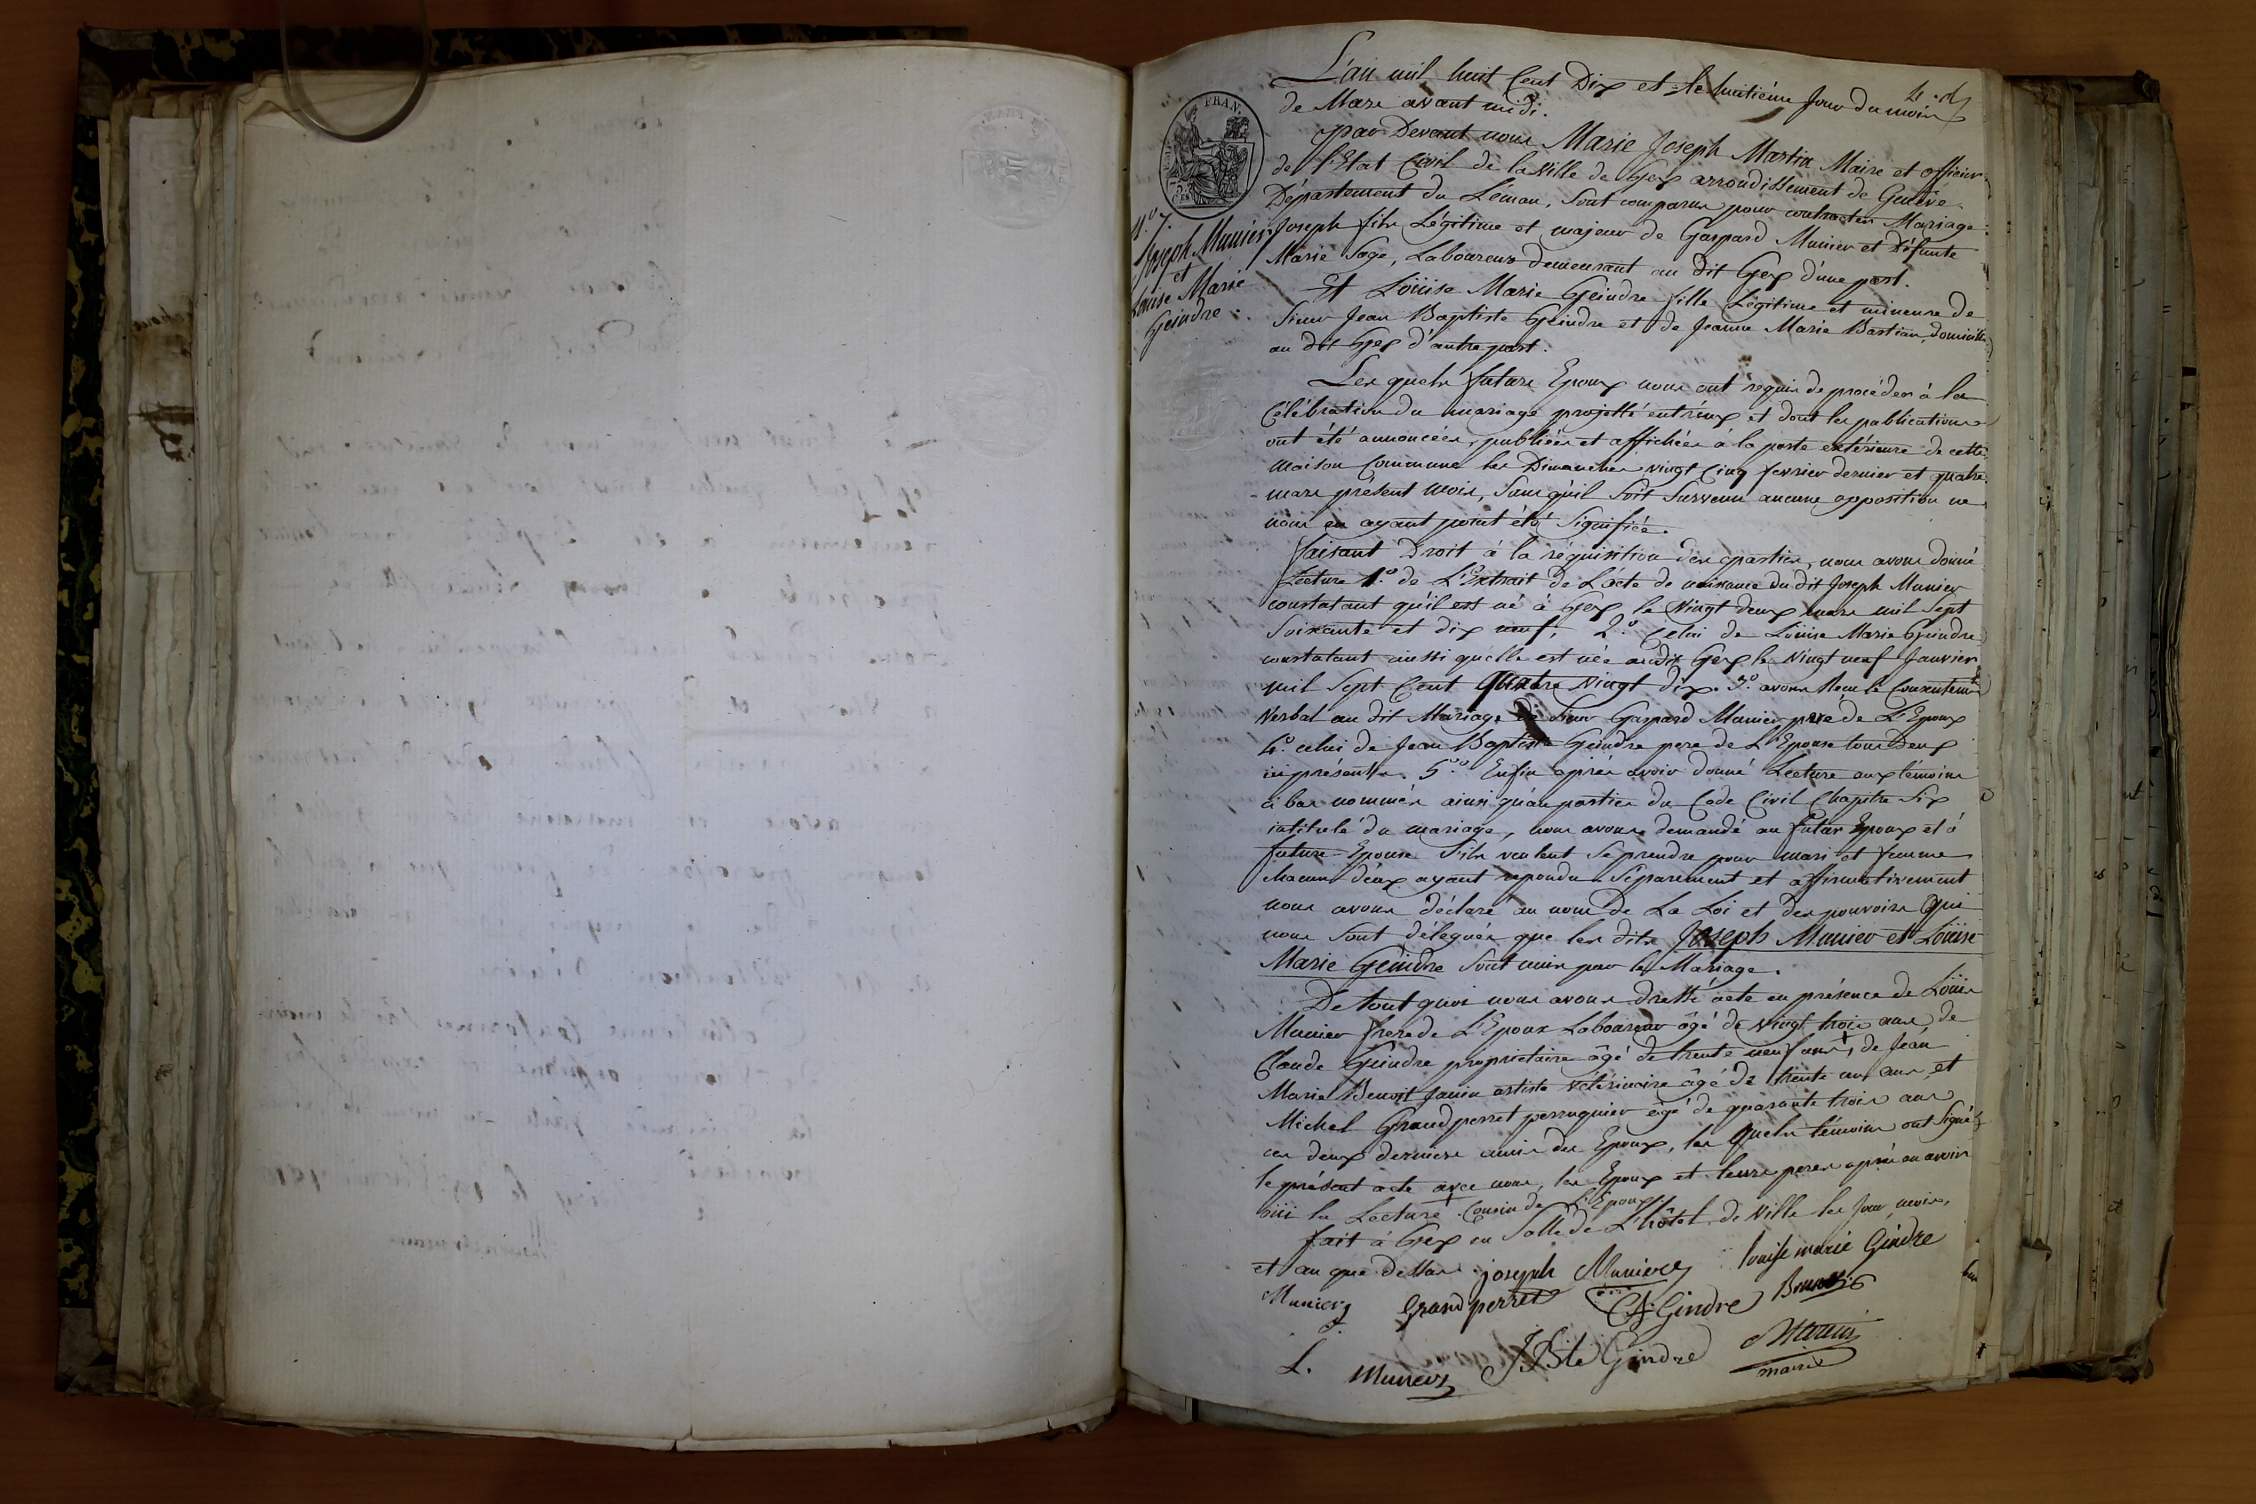 L'an mil huit Cent Dix et le huitiéme Jour du mois
de Mars avant midi.
par Devant nous Marie Joseph Martin Maire et officier
de l'Etat Civil de la Ville de Gex arrondissement de Genêve
Département du Léman, Sont comparus pour contracter Mariage
Joseph fils Légitime et majeur de Gaspard Munier et Défunte
Marie Sage, Laboureur demeurant au dit Gex d'une part.
Et Loüise Marie Geindre fille Légitime et mineure de
Sieur Jean Baptiste Geindre et de Jeanne Marie Bastian, domiciliés
au dit Gex d'autre part.
N.º 7.
Joseph Munier
et
Louise Marie
Geindre.
Les quels futurs Epoux nous ont requis de procéder à la
Célébration du mariage projetté entr'eux et dont les publications
ont été annoncées, publiées et affichées à la porte extérieure de cette
maison Commune les Dimanches vingt Cinq fevrier dernier et quatre
mars présent mois, Sans qu'il Soit Survenu aucune opposition ne
nous en ayant point été Signifiée.
faisant Droit à la réquisition des parties, nous avons donné
Lecture 1.º de L'Extrait de L'acte de naissance du dit Joseph Munier
constatant qu'il est né à Gex le Vingt deux mars mil Sept
Soixante et dix neuf; 2.º Celui de Loüise Marie Geindre
constatant aussi qu'elle est née au dit Gex le Vingt neuf Janvier
mil Sept Cent Quatre Vingt dix. 3.º avons Reçu le Consentemt
Verbal au dit Mariage de Sieur Gaspard Munier pere de L'Epoux
4.º celui de Jean Baptiste Geindre pere de L'Epouse tous deux
ici présents. 5.º Enfin aprés avoir donné Lecture aux témoins
ci bas nommés ainsi qu'aux parties du Code Civil Chapitre Six
intitulé du mariage, nous avons demandé au futur Epoux et à
future Epouse S'ils veulent Se prendre pour mari et femme
chacun d'eux ayant repondu Séparement et affirmativement
nous avons déclaré au nom de La Loi et des pouvoirs Qui
nous Sont délegués que les dits Joseph Munier et Loüise
Marie Geindre Sont unis par le Mariage.
De tout quoi nous avons dressé acte en présence de Loüis
Munier frere de L'Epoux Laboureur âgé de vingt trois ans, de
Claude Geindre proprietaire âgé de trente neuf ans +, de Jean
Marie Benoit Janin artiste vétérinaire âgé de trente un ans, et
Michel Grandperret perruquier âgé de quarante trois ans
ces deux derniers amis des Epoux, les Quels témoins ont Signé
le présent acte avec nous, les Epoux et leurs peres aprés en avoir
oüi la Lecture + Cousin de L'Epoux
fait à Gex en Salle de L'hôtel de Ville les Jour, mois,
et an que dessus. joseph Munier louise marie Gindre
Munier Grandperret Cd Gindre
L. Munier J Bte Gindre Martin
maire